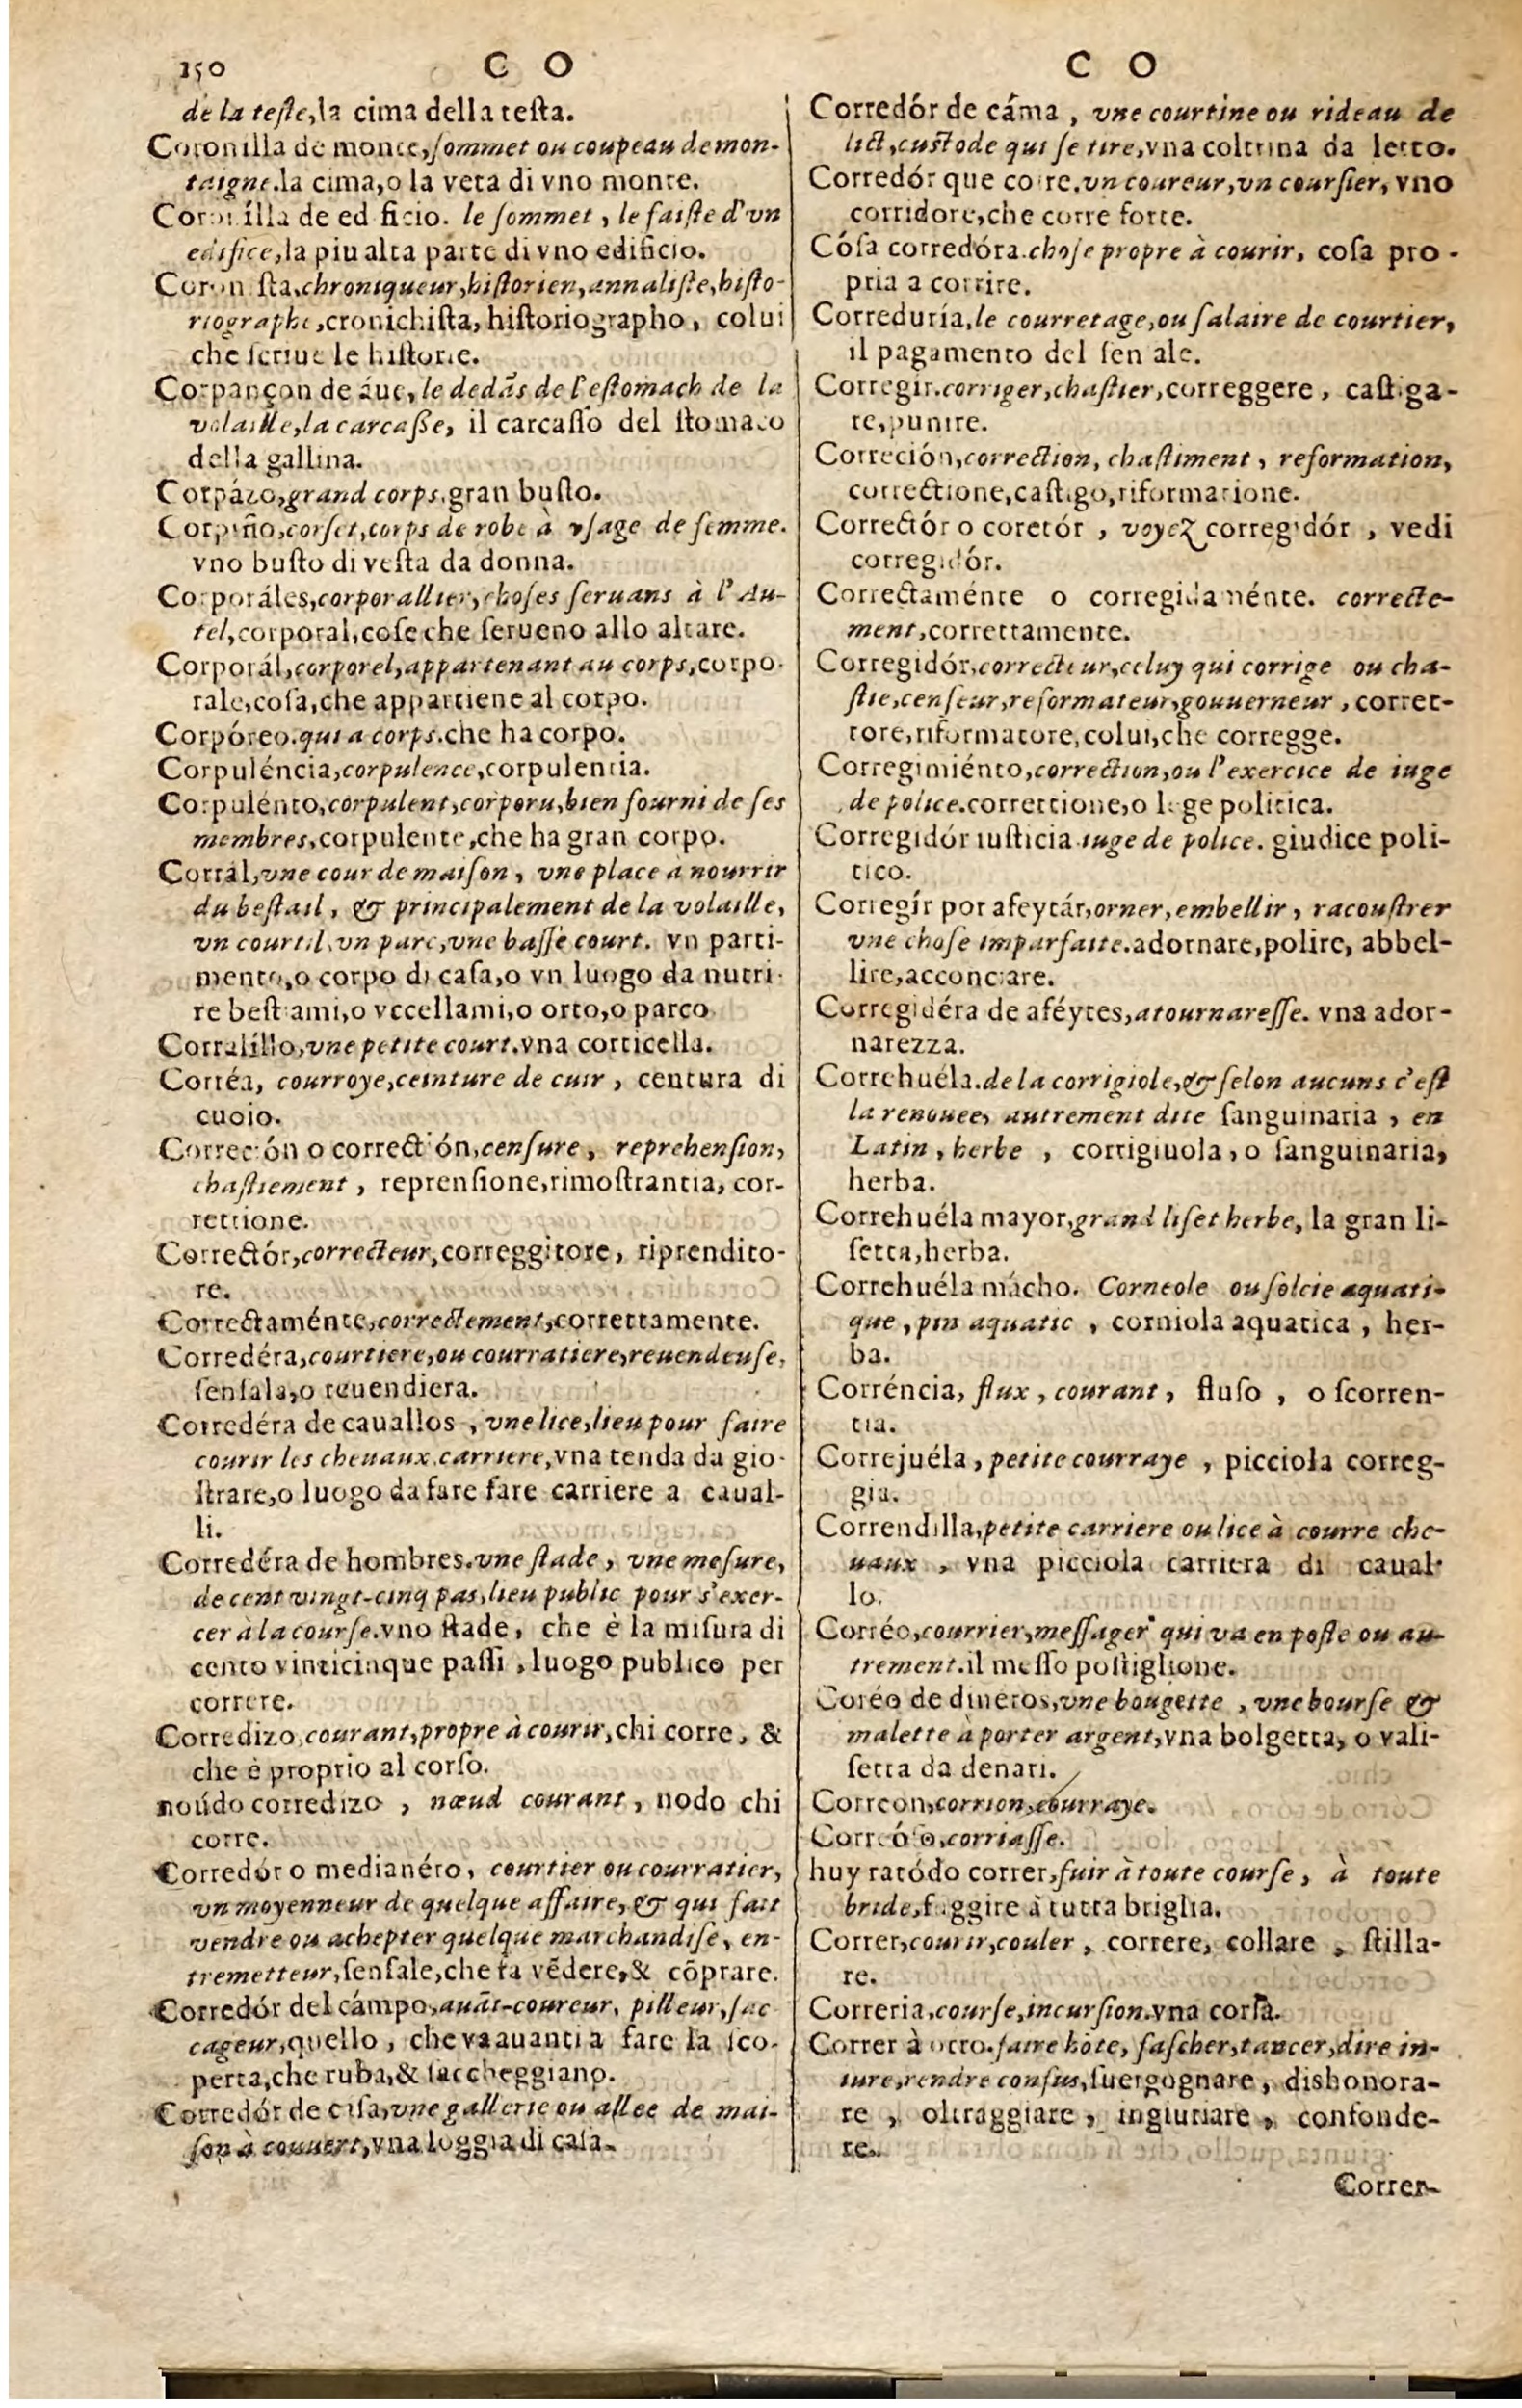 150 C O
de la teſte, la cima della teſta.
Coronilla de monte, ſommet ou coupeau de mon-
taigne. la cima, o la veta di vno monte.
Coronílla de edificio. le ſommet, le faiſte d'vn
edifice, la piu alta parte di vno edificio.
Coroniſta, chroniqueur, hiſtorien, annaliſte, hiſto-
riographe, cronichiſta, hiſtoriographo, colui
che ſcriue le hiſtorie.
Corpançon de áue, le dedãs de l'eſtomach de la
volaille, la carcaſſe, il carcaſſo del ſtomaco
della gallina.
Corpázo, grand corps, gran buſto.
Corpiño, corſet, corps de robe à vſage de femme.
vno buſto di veſta da donna.
Corporáles, corporallier, choſes ſeruans à l'Au-
tel, corporal, coſe che ſerueno allo altare.
Corporál, corporel, appartenant au corps, corpo-
rale, coſa, che appartiene al corpo.
Corpóreo. qui a corps. che ha corpo.
Corpuléncia, corpulence, corpulentia.
Corpulénto, corpulent, corporu, bien fourni de ſes
membres, corpulente, che ha gran corpo.
Corrál, vne cour de maiſon, vne place à nourrir
du beſtail, & principalement de la volaille,
vn courtil, vn parc, vne baſſe court. vn parti-
mento, o corpo di caſa, o vn luogo da nutri-
re beſtiami, o vccellami, o orto, o parco
Corralíllo, vne petite court. vna corticella.
Corréa, courroye, ceinture de cuir, centura di
cuoio.
Correción o correctión, cenſure, reprehenſion,
chaſtiement, reprenſione, rimoſtrantia, cor-
rettione.
Corrector, correcteur, correggitore, riprendito-
re.
Correctaménte, correctement, correttamente.
Corredéra, courtiere, ou courratiere, reuendeuſe,
ſenſala, o reuendiera.
Corredéra de cauallos, vne lice, lieu pour faire
courir les cheuaux, carriere, vna tenda da gio-
ſtrare, o luogo da fare fare carriere a caual-
li.
Corredéra de hombres. vne ſtade, vne meſure,
de cent vingt-cinq pas, lieu public pour s'exer-
cer à la courſe. vno ſtade, che è la miſura di
cento vinticinque paſſi, luogo publico per
correre.
Corredizo, courant, propre à courir, chi corre, &
che è proprio al corſo.
noúdo corredizo, nœud courant, nodo chi
corre.
Corredór o medianéro, courtier ou courratier,
vn moyenneur de quelque affaire, & qui fait
vendre ou achepter quelque marchandiſe, en-
tremetteur, ſenſale, che fa vẽdere, & cõprare.
Corredór del cámpo, auãt-coureur, pilleur, ſac
cageur, quello, che va auanti a fare la ſco-
perta, che ruba, & ſaccheggiano.
Corredór de caſa, vne gallerie ou allee de mai-
ſon à couuert, vna loggia di caſa.
C O
Corredór de cáma, vne courtine ou rideau de
lict, cuſtode qui ſe tire, vna coltrina da letto.
Corredór que corre. vn coureur, vn courſier, vno
corridore, che corre forte.
Cóſa corredóra. choſe propre à courir, coſa pro-
pria a corrire.
Correduría, le courretage, ou ſalaire de courtier,
il pagamento del ſenſale.
Corregir. corriger, chaſtier, correggere, caſtiga-
re, punire.
Correción, correction, chaſtiment, reformation,
correctione, caſtigo, riformatione.
Correctór o coretór, voyez corregidór, vedi
corregidór.
Correctaménte o corregidaménte. correcte-
ment, correttamente.
Corregidór, correcteur, celuy qui corrige ou cha-
ſtie, cenſeur, reformateur, gouuerneur, corret-
tore, riformatore, colui, che corregge.
Corregimiénto, correction, ou l'exercice de iuge
de police. correttione, o lege politica.
Corregidór iuſticia. iuge de police. giudice poli-
tico.
Corregír por afeytár, orner, embellir, racouſtrer
vne choſe imparfaite. adornare, polire, abbel-
lire, acconciare.
Corregidéra de aféytes, atournareſſe. vna ador-
narezza.
Correhuéla. de la corrigiole, & ſelon aucuns c'eſt
la renouee, autrement dite ſanguinaria, en
Latin, herbe, corrigiuola, o ſanguinaria,
herba.
Correhuéla mayor, grand liſet herbe, la gran li-
ſetta, herba.
Correhuéla mácho. Corneole ou ſolcie aquati-
que, pin aquatic, corniola aquatica, her-
ba.
Corréncia, flux, courant, fluſo, o ſcorren-
tia.
Correjuéla, petite courraye, picciola correg-
gia.
Correndilla, petite carriere ou lice à courre che-
uaux, vna picciola carriera di caual-
lo.
Corréo, courrier, meſſager qui va en poſte ou au-
trement. il meſſo poſtiglione.
Coréo de dineros, vne bougette, vne bourſe &
malette à porter argent, vna bolgetta, o vali-
ſetta da denari.
Correon, corrion, courraye.
Correóſo, corriaſſe.
huy ratódo correr, fuir à toute courſe, à toute
bride, fuggire à tutta briglia.
Correr, courir, couler, correre, collare, ſtilla-
re.
Correria, courſe, incurſion. vna corſa.
Correr à otro. faire hôte, faſcher, tancer, dire in-
iure, rendre confus, ſuergognare, dishonora-
re, oltraggiare, ingiuriare, confonde-
re.
Correr-